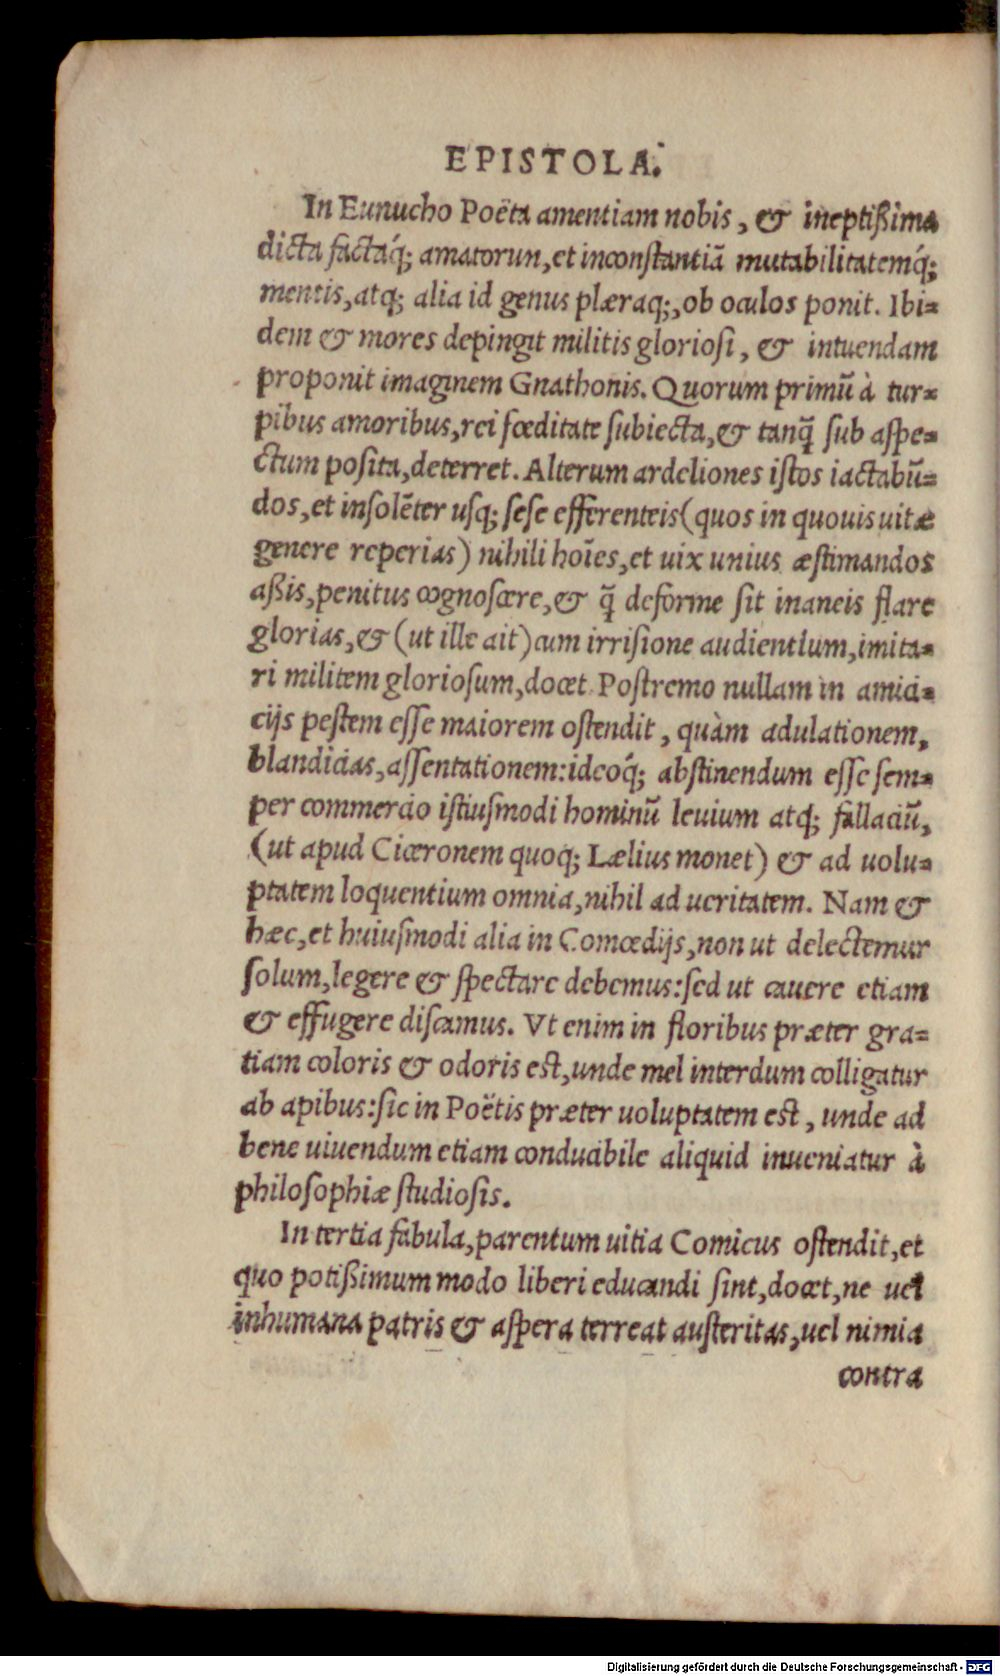 EPISTOLA.
In Eunucho Poëta amentiam nobis, & ineptißima
dicta factaq́; amatorun, et inconstantiā mutabilitatemq́;
mentis, atq; alia id genus plæraq;, ob oculos ponit. Ibi=
dem & mores depingit militis gloriosi, & intuendam
proponit imaginem Gnathonis. Quorum primū à tur=
pibus amoribus, rei fœditate subiecta, & tanq̄ sub aspe=
ctum posita, deterret. Alterum ardeliones istos iactabū=
dos, et insolēter usq; sese efferenteis (quos in quouis uitæ
genere reperias) nihili hoīes, et uix unius æstimandos
aßis, penitus cognoscere, & q̄ deforme sit inaneis flare
glorias, & (ut ille ait) cum irrisione audientium, imita=
ri militem gloriosum, docet. Postremo nullam in amici=
cijs pestem esse maiorem ostendit, quàm adulationem,
blandicias, assentationem: ideoq́; abstinendum esse sem=
per commercio istiusmodi hominū leuium atq; fallaciū,
(ut apud Ciceronem quoq; Lælius monet) & ad uolu=
ptatem loquentium omnia, nihil ad ueritatem. Nam &
hæc, et huiusmodi alia in Comœdijs, non ut delectemur
solum, legere & spectare debemus: sed ut cauere etiam
& effugere discamus. Vt enim in floribus præter gra=
tiam coloris & odoris est, unde mel interdum colligatur
ab apibus: sic in Poëtis præter uoluptatem est, unde ad
bene uiuendum etiam conducibile aliquid inueniatur à
philosophiæ studiosis.
In tertia fabula, parentum uitia Comicus ostendit, et
quo potißimum modo liberi educandi sint, docet, ne uel
inhumana patris & aspera terreat austeritas, uel nimia
contra
Digitalisierung gefördert durch die Deutsche Forschungsgemeinschaft - DFG